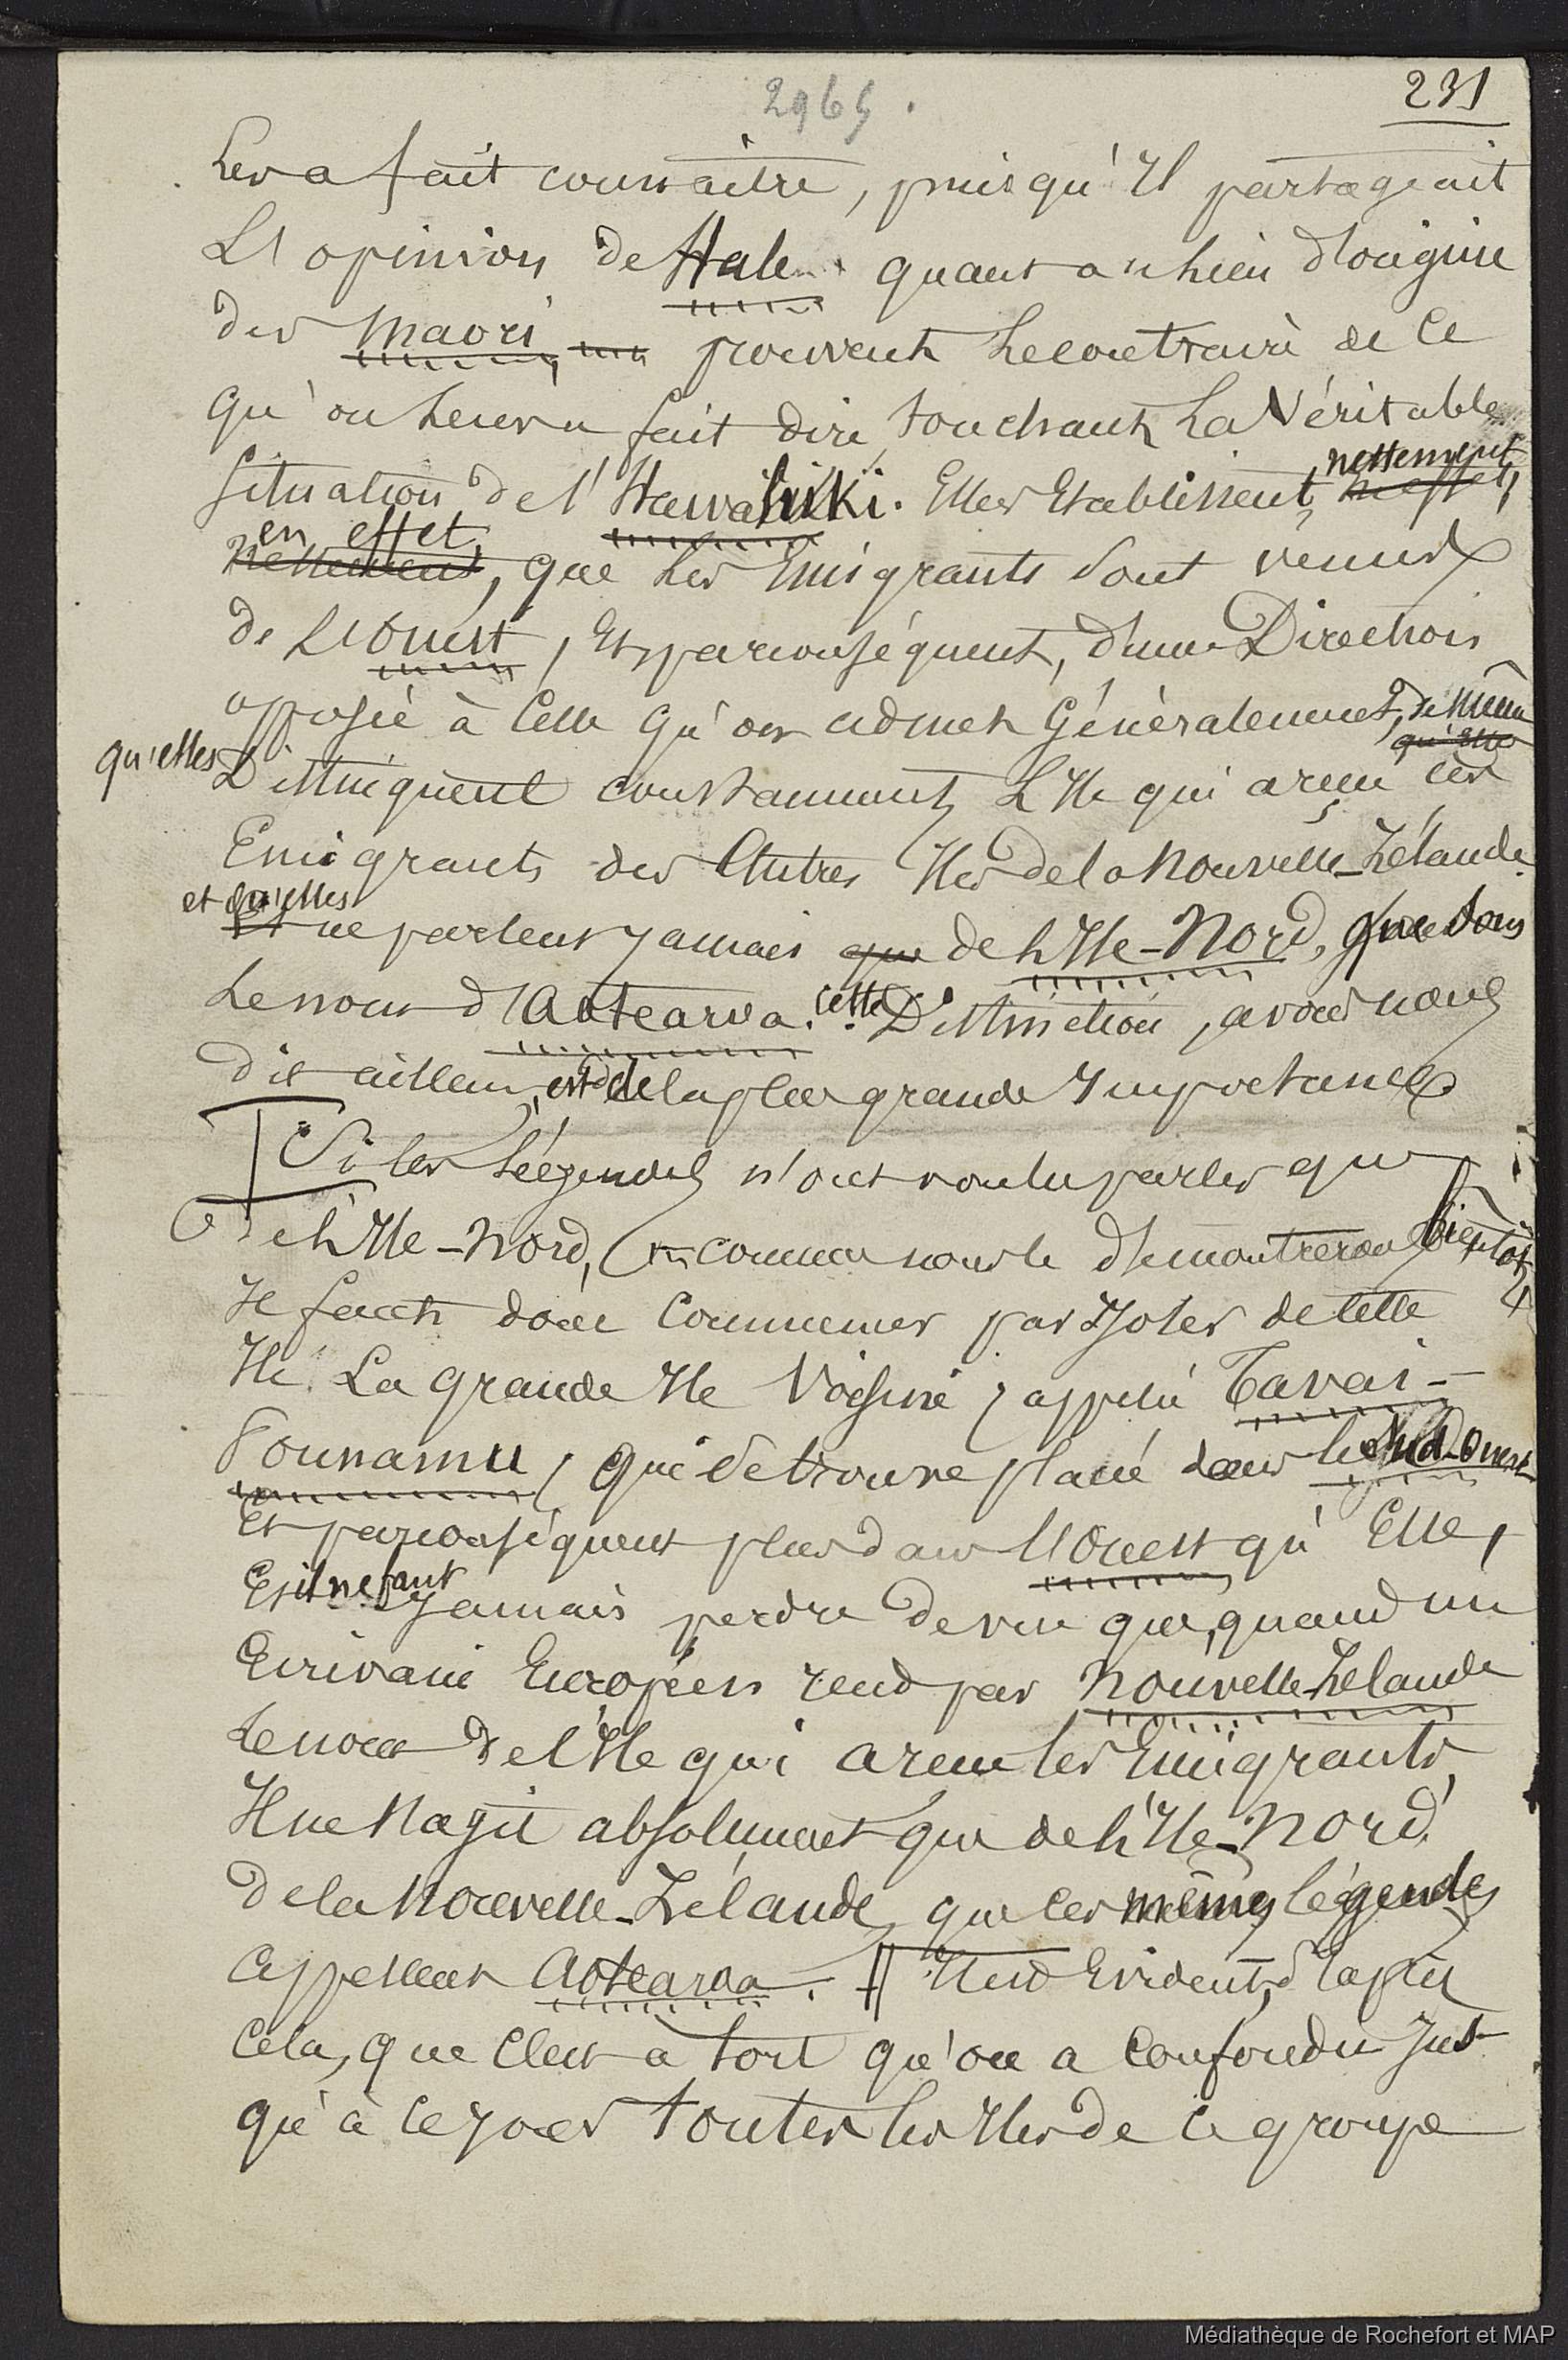 2965.
231
les a fait connaître, puisqu'Il partageait
L'opinion de Hale quant au lieu d'origine
des Maori, prouvent le contraire de Ce
Qu'on leur a fait dire, touchant La Véritable
Situation de l'Hawahiki. Elles Etablissent, nettement,
en effet,
nettement, que les Emigrants sont venus
de L'Ouest, Et par conséquent, d'une Direction
opposée à Celle Qu'on admet Généralement, de même
qu'elle
qu'elles Distinguent constamment L'Ile qui a reçu ces
Emigrants des Autres Iles de la Nouvelle-Zélande.
et qu'elles
Et ne parlent Jamais que de L'Ile-Nord, sous
Le nom d'Aotearoa. Cette Distinction, avons nous
Dit ailleurs, est de la plus grande Importance
Si les Légendes n'ont voulu parler que
de L'Ile-Nord, comme nous le démontrerons bientôt,
Il faut donc Commencer par Isoler de cette
Ile La grande Ile Voisine, appelée Tavai-
Pounamu, Qui Se trouve placée dans le Sud-Ouest
Et par conséquent plus dans L'Ouest qu'Elle,
Et il ne faut Jamais perdre de vue que, quand un
Ecrivain Européen rend par Nouvelle-Zélande
Le nom de l'Ile qui a reçu les Emigrants,
Il ne S'agit absolument que de L'Ile-Nord
De la Nouvelle-Zélande, que les mêmes légendes
Appellent Aotearoa. Il est Evident, d'après
Cela, que C'est à tort qu'on a Confondu Jus
qu'à ce Jour toutes les Iles de ce groupe
Médiathèque de Rochefort et MAP